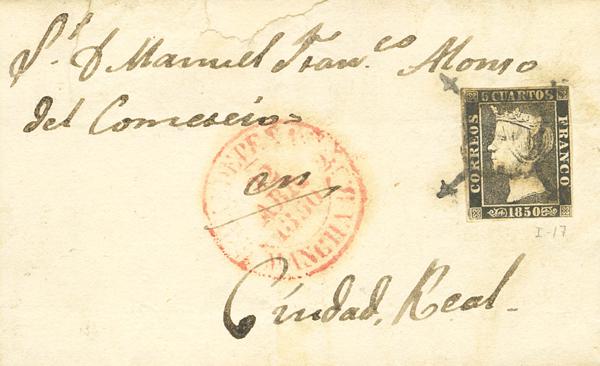 Sr. D Manuel Fran.co Alonso
del Comercio
en
Ciudad, Real.
6 CUARTOS
CORREOS
FRANCO
1850
I-17
ABR
1850